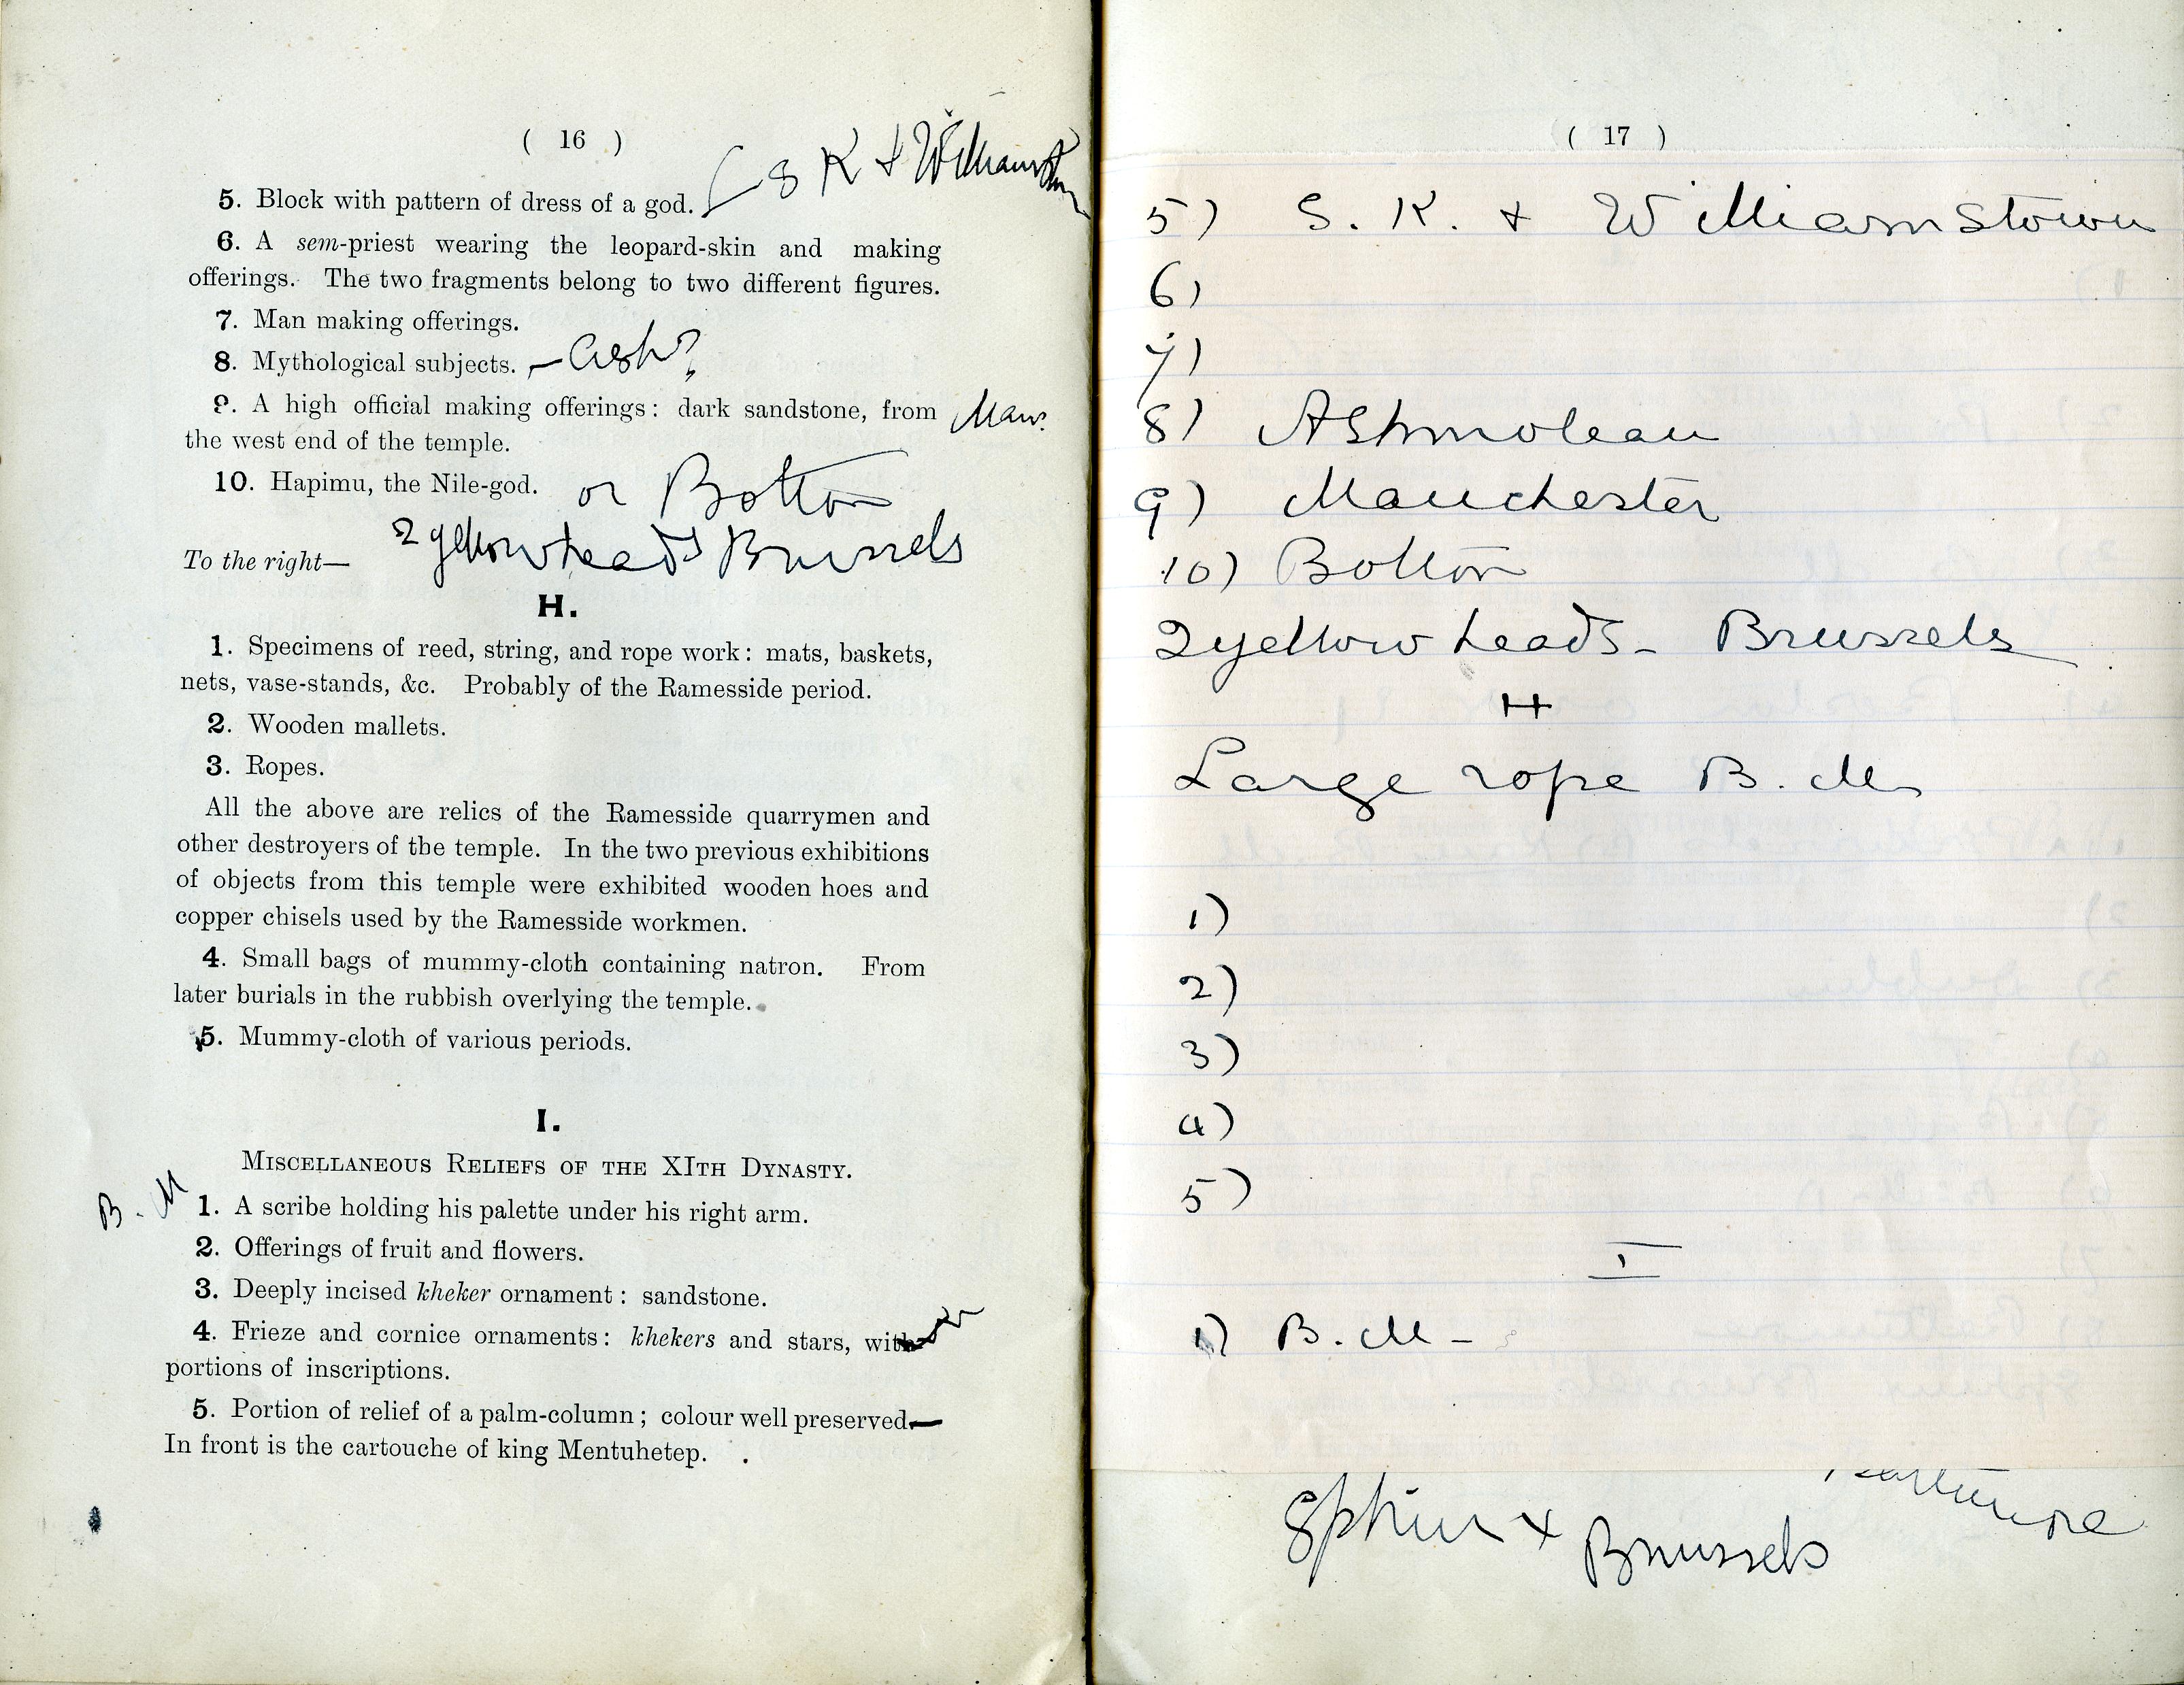 ( 16 )
S K & Williamstown
5. Block with pattern of dress of a god.
6. A sem-priest wearing the leopard-skin and making
offerings. The two fragments belong to two different figures.
7. Man making offerings.
8. Mythological subjects. — Ash?
9. A high official making offerings: dark sandstone, from Man.
the west end of the temple.
10. Hapimu, the Nile-god. or Bolton
2 yellow heads Brussels
To the right—
H.
1. Specimens of reed, string, and rope work: mats, baskets,
nets, vase-stands, &c. Probably of the Ramesside period.
2. Wooden mallets.
3. Ropes.
All the above are relics of the Ramesside quarrymen and
other destroyers of the temple. In the two previous exhibitions
of objects from this temple were exhibited wooden hoes and
copper chisels used by the Ramesside workmen.
4. Small bags of mummy-cloth containing natron. From
later burials in the rubbish overlying the temple.
5. Mummy-cloth of various periods.
I.
Miscellaneous Reliefs of the XIth Dynasty.
B. M 1. A scribe holding his palette under his right arm.
2. Offerings of fruit and flowers.
3. Deeply incised kheker ornament: sandstone.
4. Frieze and cornice ornaments: khekers and stars, with
portions of inscriptions.
5. Portion of relief of a palm-column; colour well preserved
In front is the cartouche of king Mentuhetep.
( 17 )
5) S. K. & Williamstown
6)
7)
8) Ashmolean
9) Manchester
10) Bolton
2 yellow heads - Brussels
H
Large rope B. M
1)
2)
3)
4)
5)
I
1) B. M -
Baltimore
Sphinx Brussels